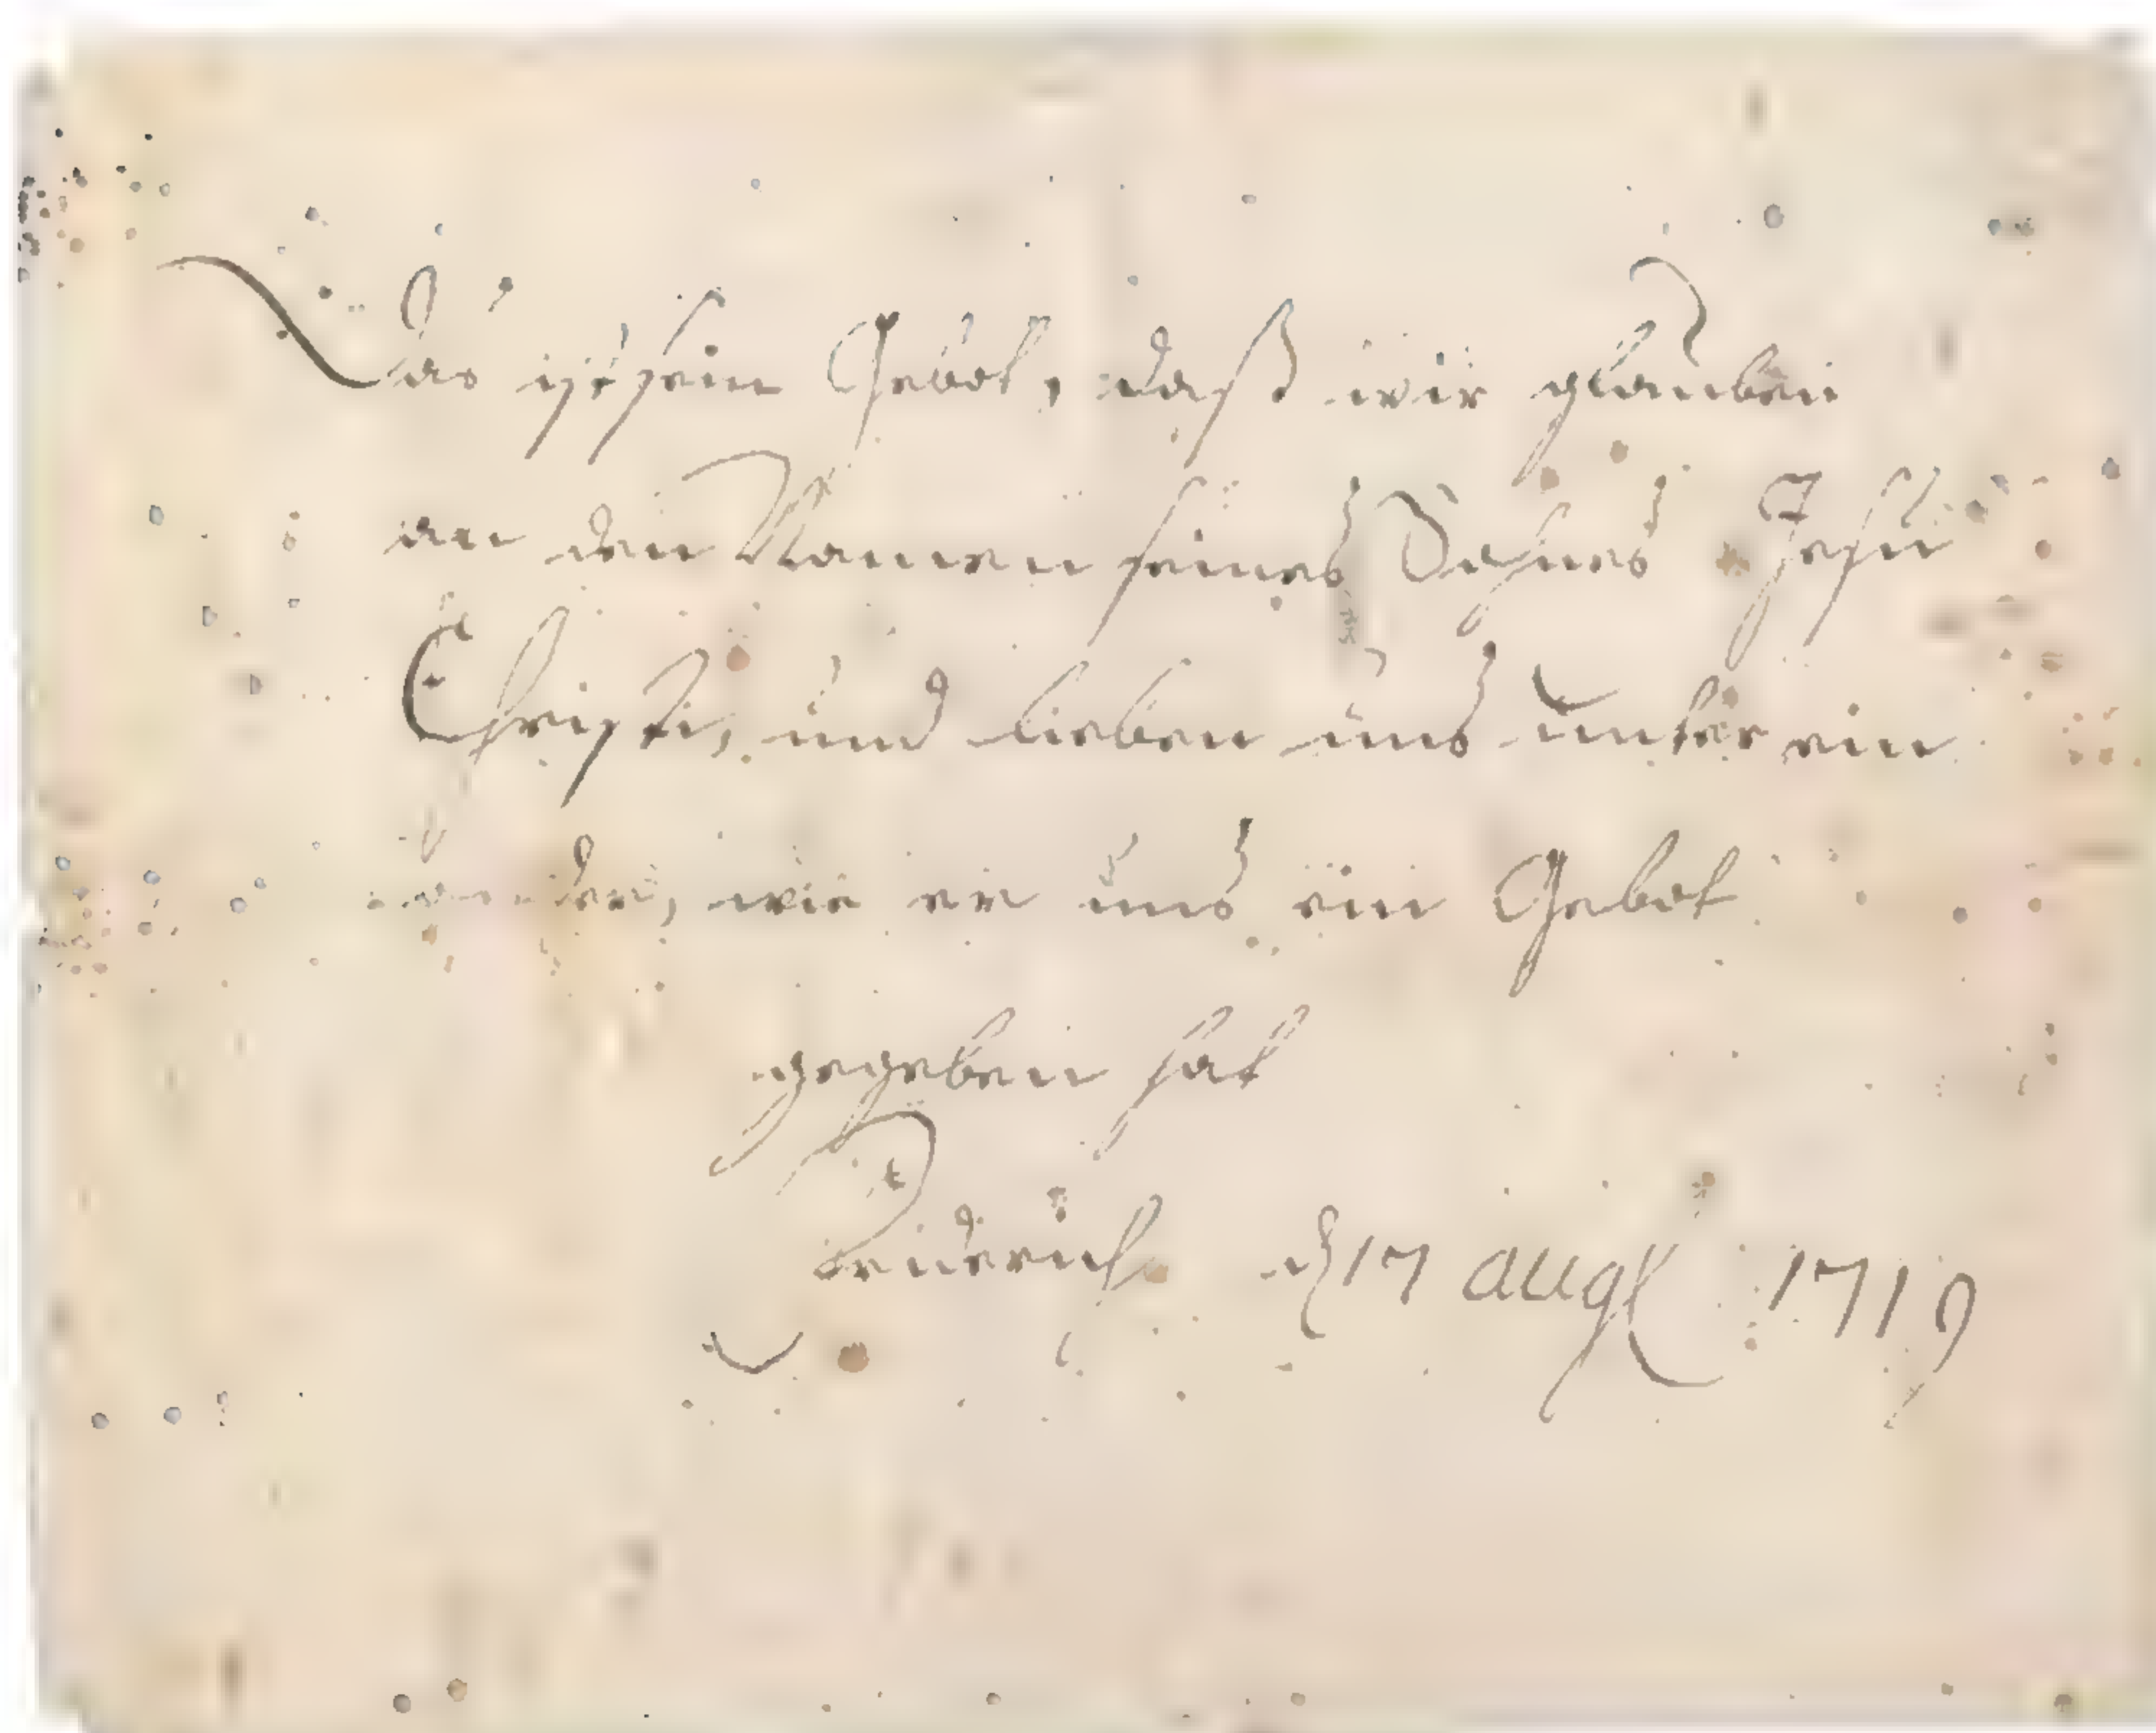 Das ist sein Gebot, daß wir glauben
an den Namen seines Sohnes Jesu
Christi, und lieben uns unter ein
ander, wie er uns ein Gebot
gegeben hat
d 17 Augl 1719